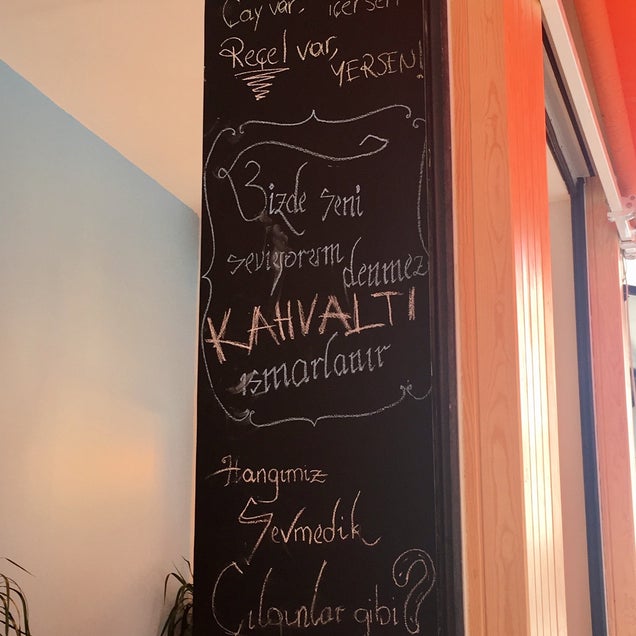 Çay var, içersen
Reçel var,
YERSEN!
Bizde seni
seviyorum denmez
KAHVALTI
ısmarlanır
Hangimiz
Sevmedik
Çılgınlar gibi?